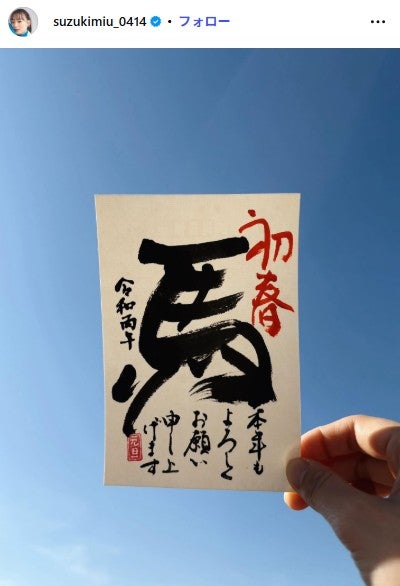 suzukimiu_0414 • フォロー
初春
馬
令和丙午
本年も
よろしく
お願い
申し上
げます
元旦